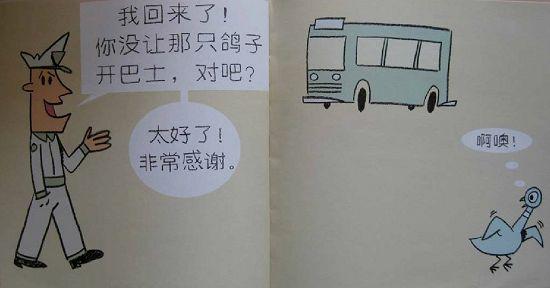 我回来了！
你没让那只鸽子
开巴士，对吧？
太好了！
非常感谢。
啊噢！